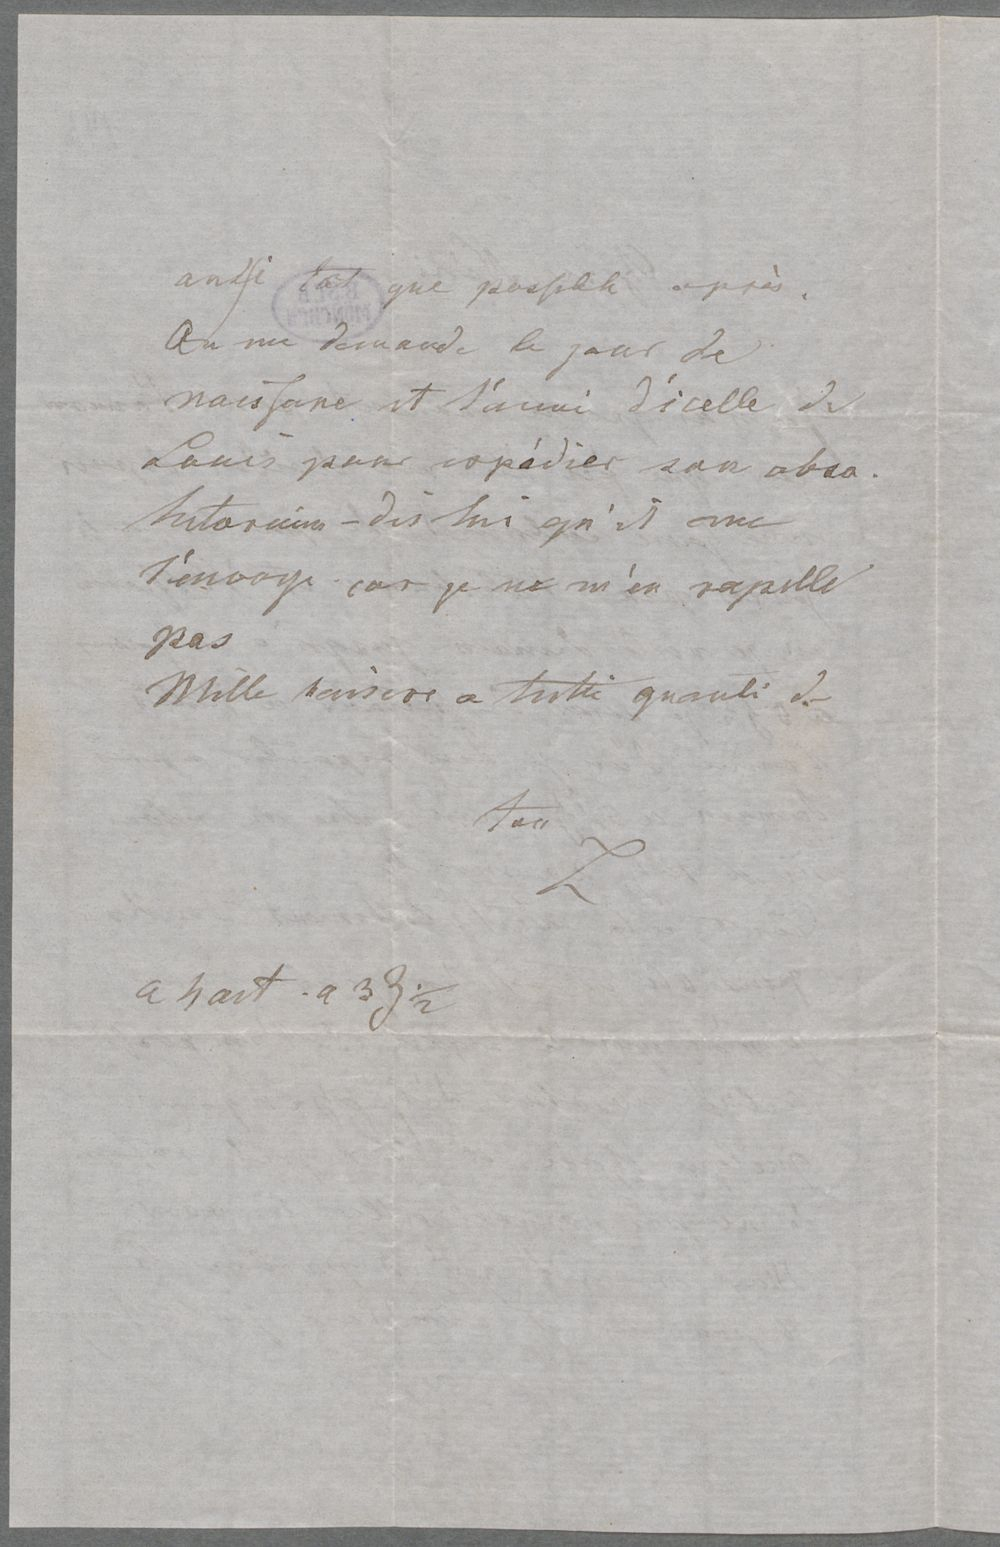 aussi tot que possible après.
On me demande le jour de
naissance et l'année d'icelle de
Louis pour expédier son abso-
lutorium – dis lui qu'il me
l'envoye car je ne m'en rapelle
pas
Mille baisers a tutti quanti de
ton
Z
a part - a 3